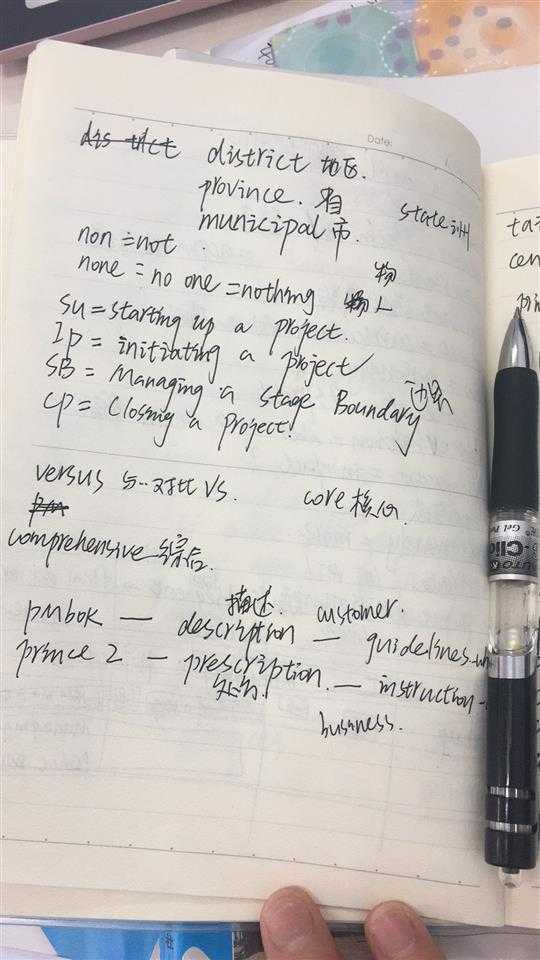 Date:
district 地区.
province. 省
state 州
municipal 市.
non = not
物
none = no one = nothing 物 人
SU = starting up a project.
Ip = initiating a project
SB = Managing a stage Boundary 边界
CP = Closing a Project.
versus 与…对比 VS.
core 核心.
comprehensive 综合.
描述. customer.
pmbok — description — guidelines
prince 2 — prescription. — instruction -
处方.
business.
tai
cen